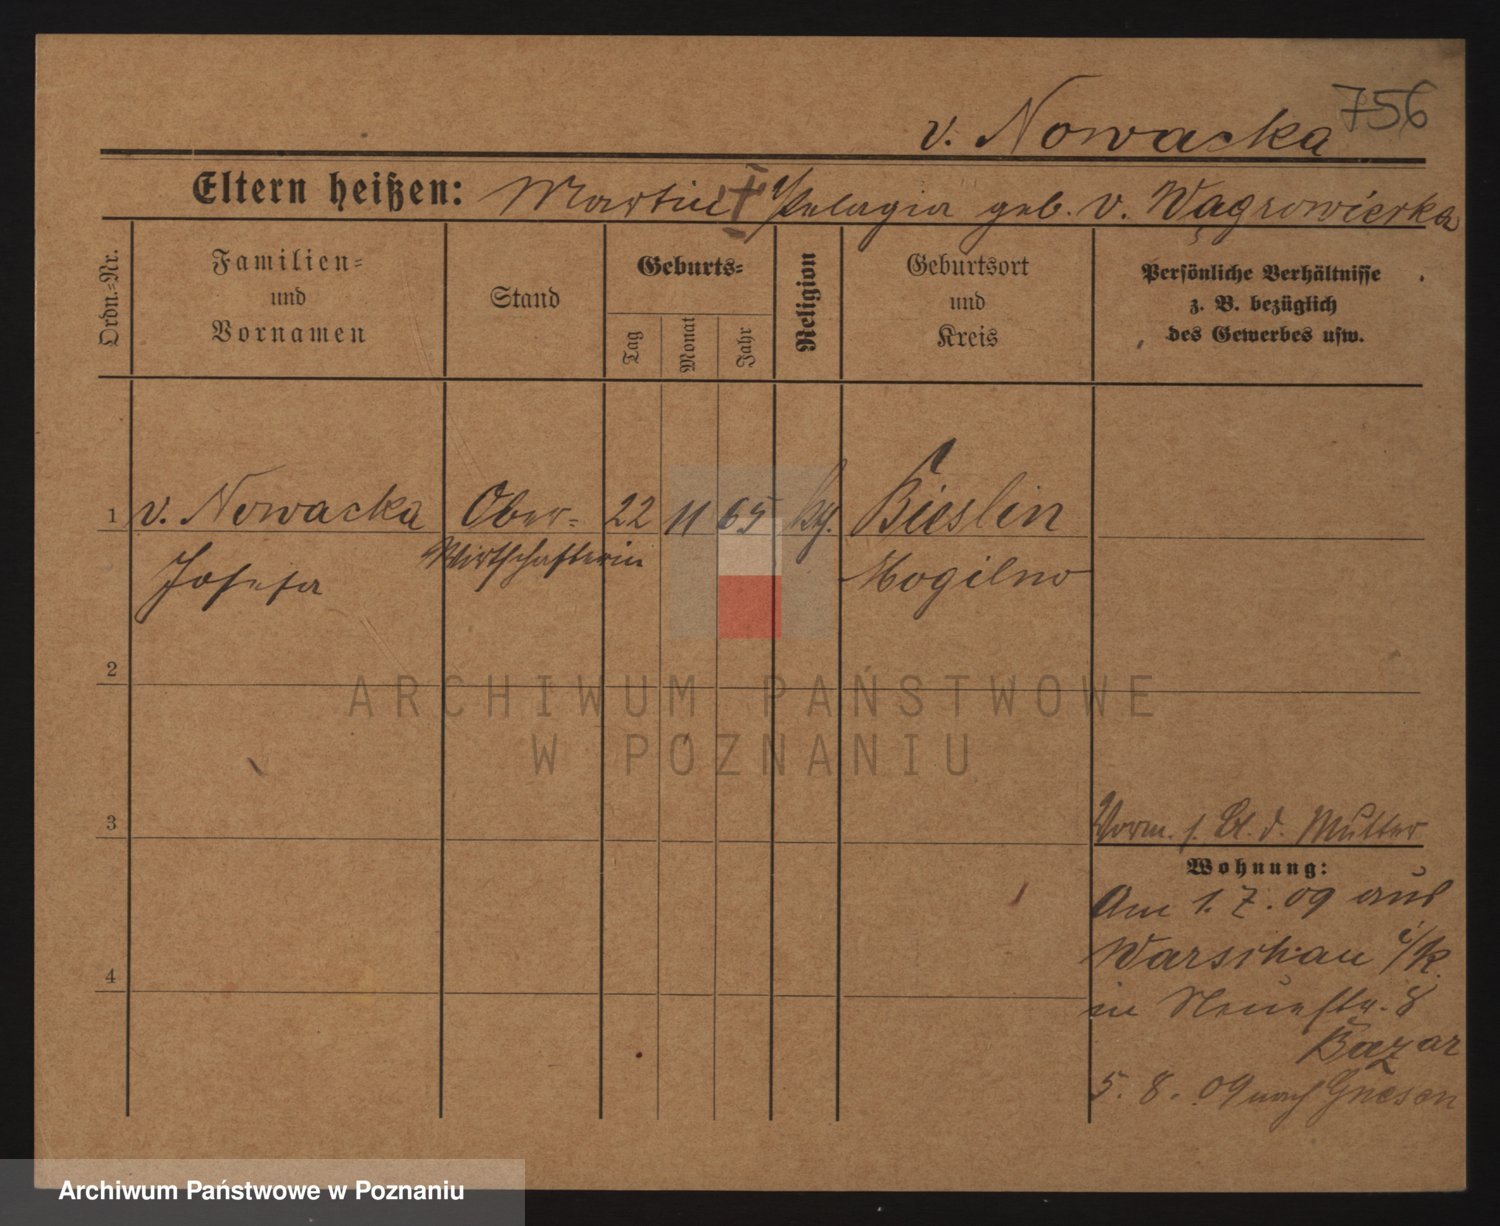 756
v. Nowacka
Eltern heißen: Martin † Pelagia geb. v. Wągrowiecka
Ordn.-Nr.
Familien-
und
Vornamen
Stand
Geburts-
Tag
Monat
Jahr
Religion
Geburtsort
und
Kreis
Persönliche Verhältnisse
z. B. bezüglich
des Gewerbes usw.
1 v. Nowacka Ober- 22 11 65 kg. Bieslin
Josefa Wirtschafterin Mogilno
2
3
4
Vorm. s. Bl. d. Mutter
Wohnung:
Am 1. 7. 09 aus
Warschau i/R.
in Neuestr. 8
Bazar
5. 8. 09 nach Gnesen
ARCHIWUM PAŃSTWOWE
W POZNANIU
Archiwum Państwowe w Poznaniu